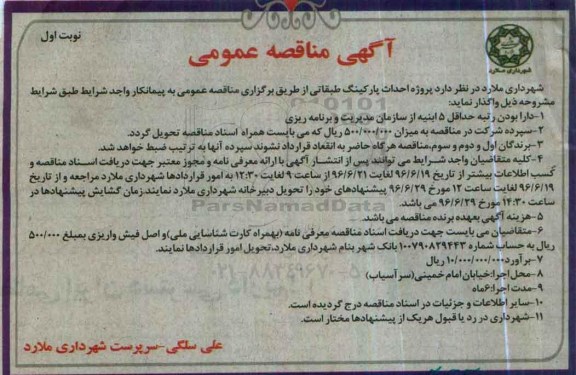 نوبت اول
شهرداری ملارد
آگهی مناقصه عمومی
شهرداری ملارد در نظر دارد پروژه احداث پارکینگ طبقاتی از طریق برگزاری مناقصه عمومی به پیمانکار واجد شرایط طبق شرایط
مشروحه ذیل واگذار نماید:
۱-دارا بودن رتبه حداقل ۵ ابنیه از سازمان مدیریت و برنامه ریزی
۲-سپرده شرکت در مناقصه به میزان ۵۰۰/۰۰۰/۰۰۰ ریال که می بایست همراه اسناد مناقصه تحویل گردد.
۳-برندگان اول و دوم و سوم،مناقصه هرگاه حاضر به انعقاد قرارداد نشوند سپرده آنها به ترتیب ضبط خواهد شد.
۴-کلیه متقاضیان واجد شرایط می توانند پس از انتشار آگهی با ارائه معرفی نامه و مجوز معتبر جهت دریافت اسناد مناقصه و
کسب اطلاعات بیشتر از تاریخ ۹۶/۶/۱۹ لغایت ۹۶/۶/۲۱ از ساعت ۹ لغایت ۱۲:۳۰ به امور قراردادها شهرداری ملارد مراجعه و از تاریخ
۹۶/۶/۱۹ لغایت ساعت ۱۲ مورخ ۹۶/۶/۲۹ پیشنهادهای خود را تحویل دبیرخانه شهرداری ملارد نمایند.زمان گشایش پیشنهادها در
ساعت ۱۴:۳۰ مورخ ۹۶/۶/۲۹ می باشد.
ParsNamadData
۵-هزینه آگهی بعهده برنده مناقصه می باشد.
۶-متقاضیان می بایست جهت دریافت اسناد مناقصه معرفی نامه (بهمراه کارت شناسایی ملی)و اصل فیش واریزی بمبلغ ۵۰۰/۰۰۰
ریال به حساب شماره ۱۰۰۷۹۰۸۲۹۴۴۳ بانک شهر بنام شهرداری ملارد،تحویل امور قراردادها نمایند.
۷-برآورد۱۰/۰۰۰/۰۰۰/۰۰۰ ریال
۸-محل اجرا:خیابان امام خمینی(سرآسیاب)
۹-مدت اجرا:۶ماه
۱۰-سایر اطلاعات و جزئیات در اسناد مناقصه درج گردیده است.
۱۱-شهرداری در رد یا قبول هریک از پیشنهادها مختار است.
علی سلگی-سرپرست شهرداری ملارد